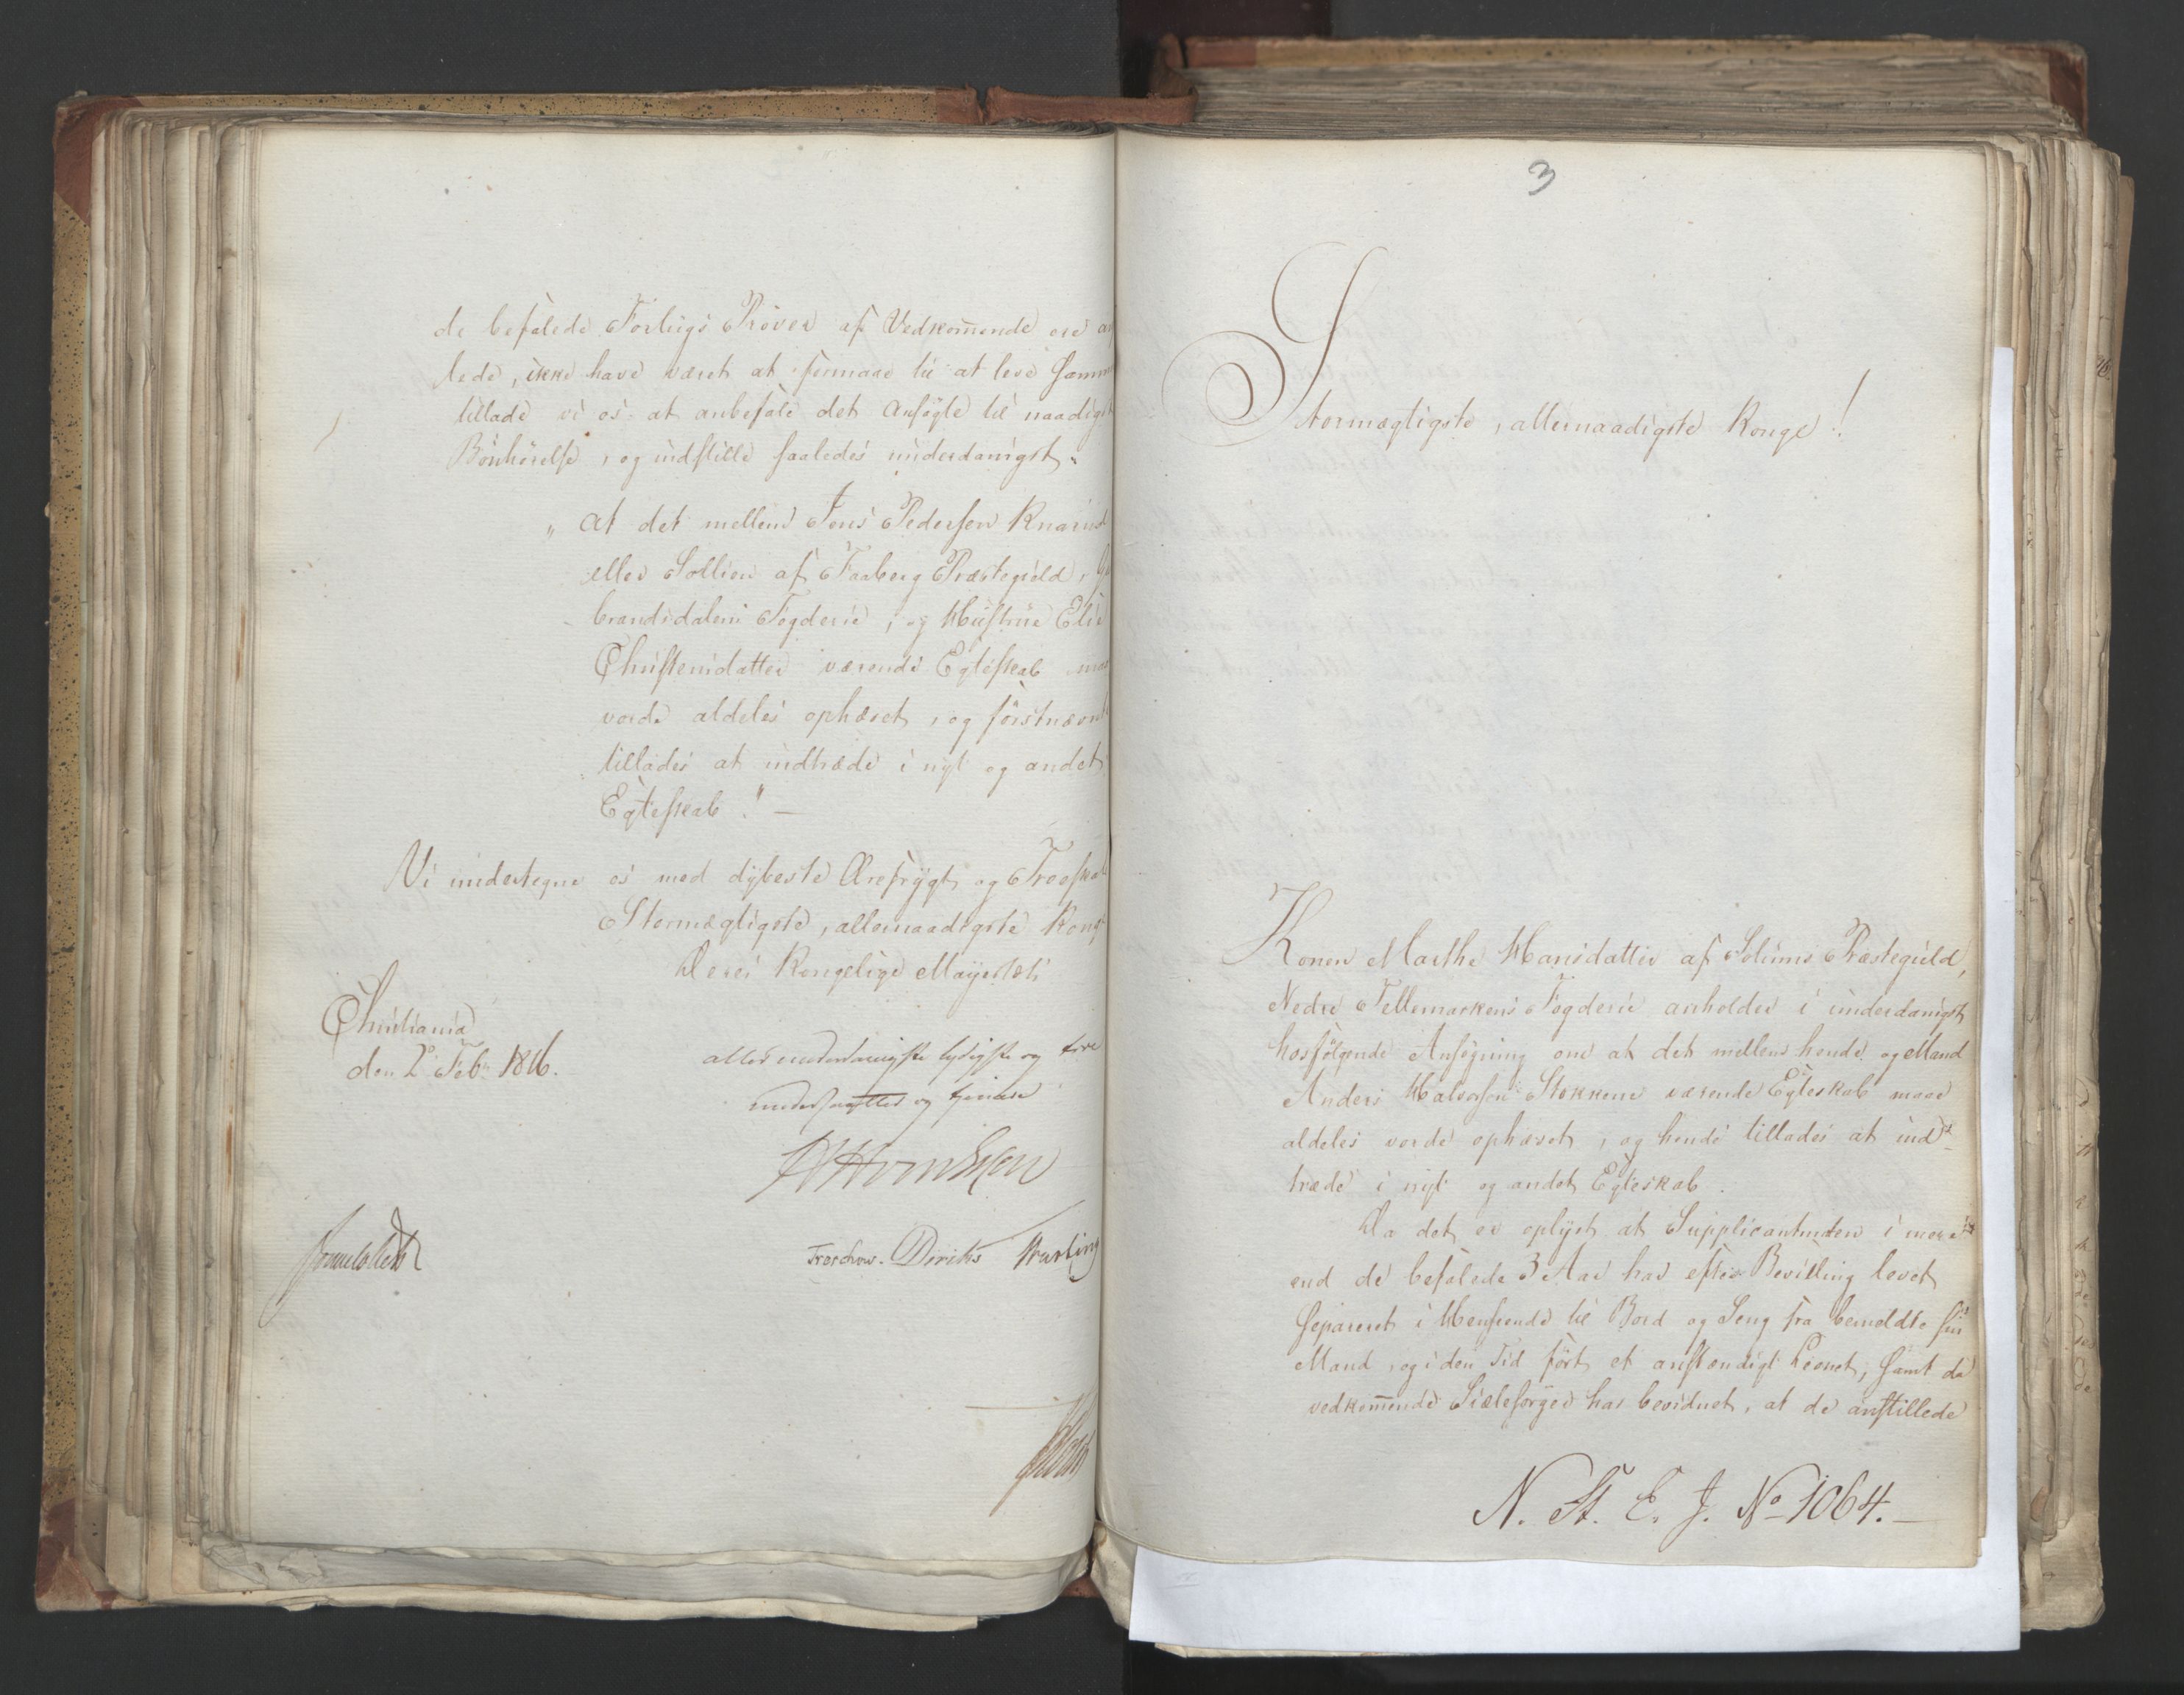 de befalede Forligs Prøver af Vedkom̅ende ere an
lede, ikke have været at formaae til at leve samm
tillade vi os at anbefale det Ansøgte til naadigst
Bönhörelse, og indstille saaledes underdanigst.
„ at det mellem Jens Pedersen
eller Sollien af Faaberg Præstegield, Gu
brandsdalens Fogderie, og Hustrue Elie
Christensdatter værende Egteskab maa
vorde aldeles ophævet, og förstnævnt
tillades at indtræde i nyt og andet
Egteskab." —
Vi undertegne os med dybeste Ærefrygt og Troeskab
Stormægtigste, allernaadigste Kong
Deres Kongelige Mayestæts
Christiania
den 2º Feb. 1816.
allerunderdanigste lydigste og troe
undersaatter og tjenere
Sommerhielm
Treschow. Diriks
3
Stormægtigste, allernaadigste Konge!
Konen Marthe Hansdatter af Solums Præstegield,
Nedre Tellemarkens Fogderie anholder i underdanigst
hosfölgende Ansøgning om at det mellem hende og Mand
Anders Halvorsen Stokkene værende Egteskab maae
aldeles vorde ophævet, og hende tillades at ind-
træde i nyt og andet Egteskab.
Da det er oplyst at Supplicantinden i mere
end de befalede 3 Aar har efter Bevilling levet
separeret i Henseende til Bord og Seng fra bemeldte sin
Mand, og i den Tid fört et anstændigt Levnet, samt da
vedkom̅ende Siælesørger har bevidnet, at de anstillede
N. St. E. J. Nº 1064. —